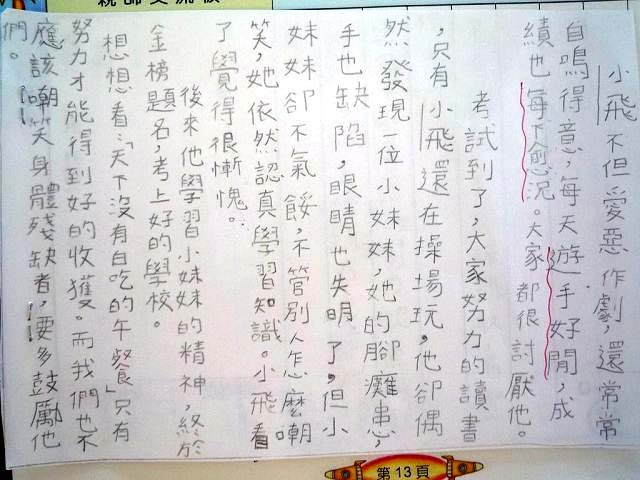 小飛不但愛惡作劇,還常常
自鳴得意,每天遊手好閒,成
績也每下愈況。大家都很討厭他。
考試到了,大家努力的讀書
,只有小飛還在操場玩,他卻偶
然發現一位小妹妹,她的腳癱患,
手也缺陷,眼睛也失明了,但小
妹妹卻不氣餒,不管別人怎麼嘲
笑,她依然認真學習知識。小飛看
了覺得很慚愧。
後來他學習小妹妹的精神,終於
金榜題名,考上好的學校。
想想看:「天下沒有白吃的午餐」只有
努力才能得到好的收獲。而我們也不
應該嘲笑身體殘缺者,要多鼓勵他
們。
第13頁